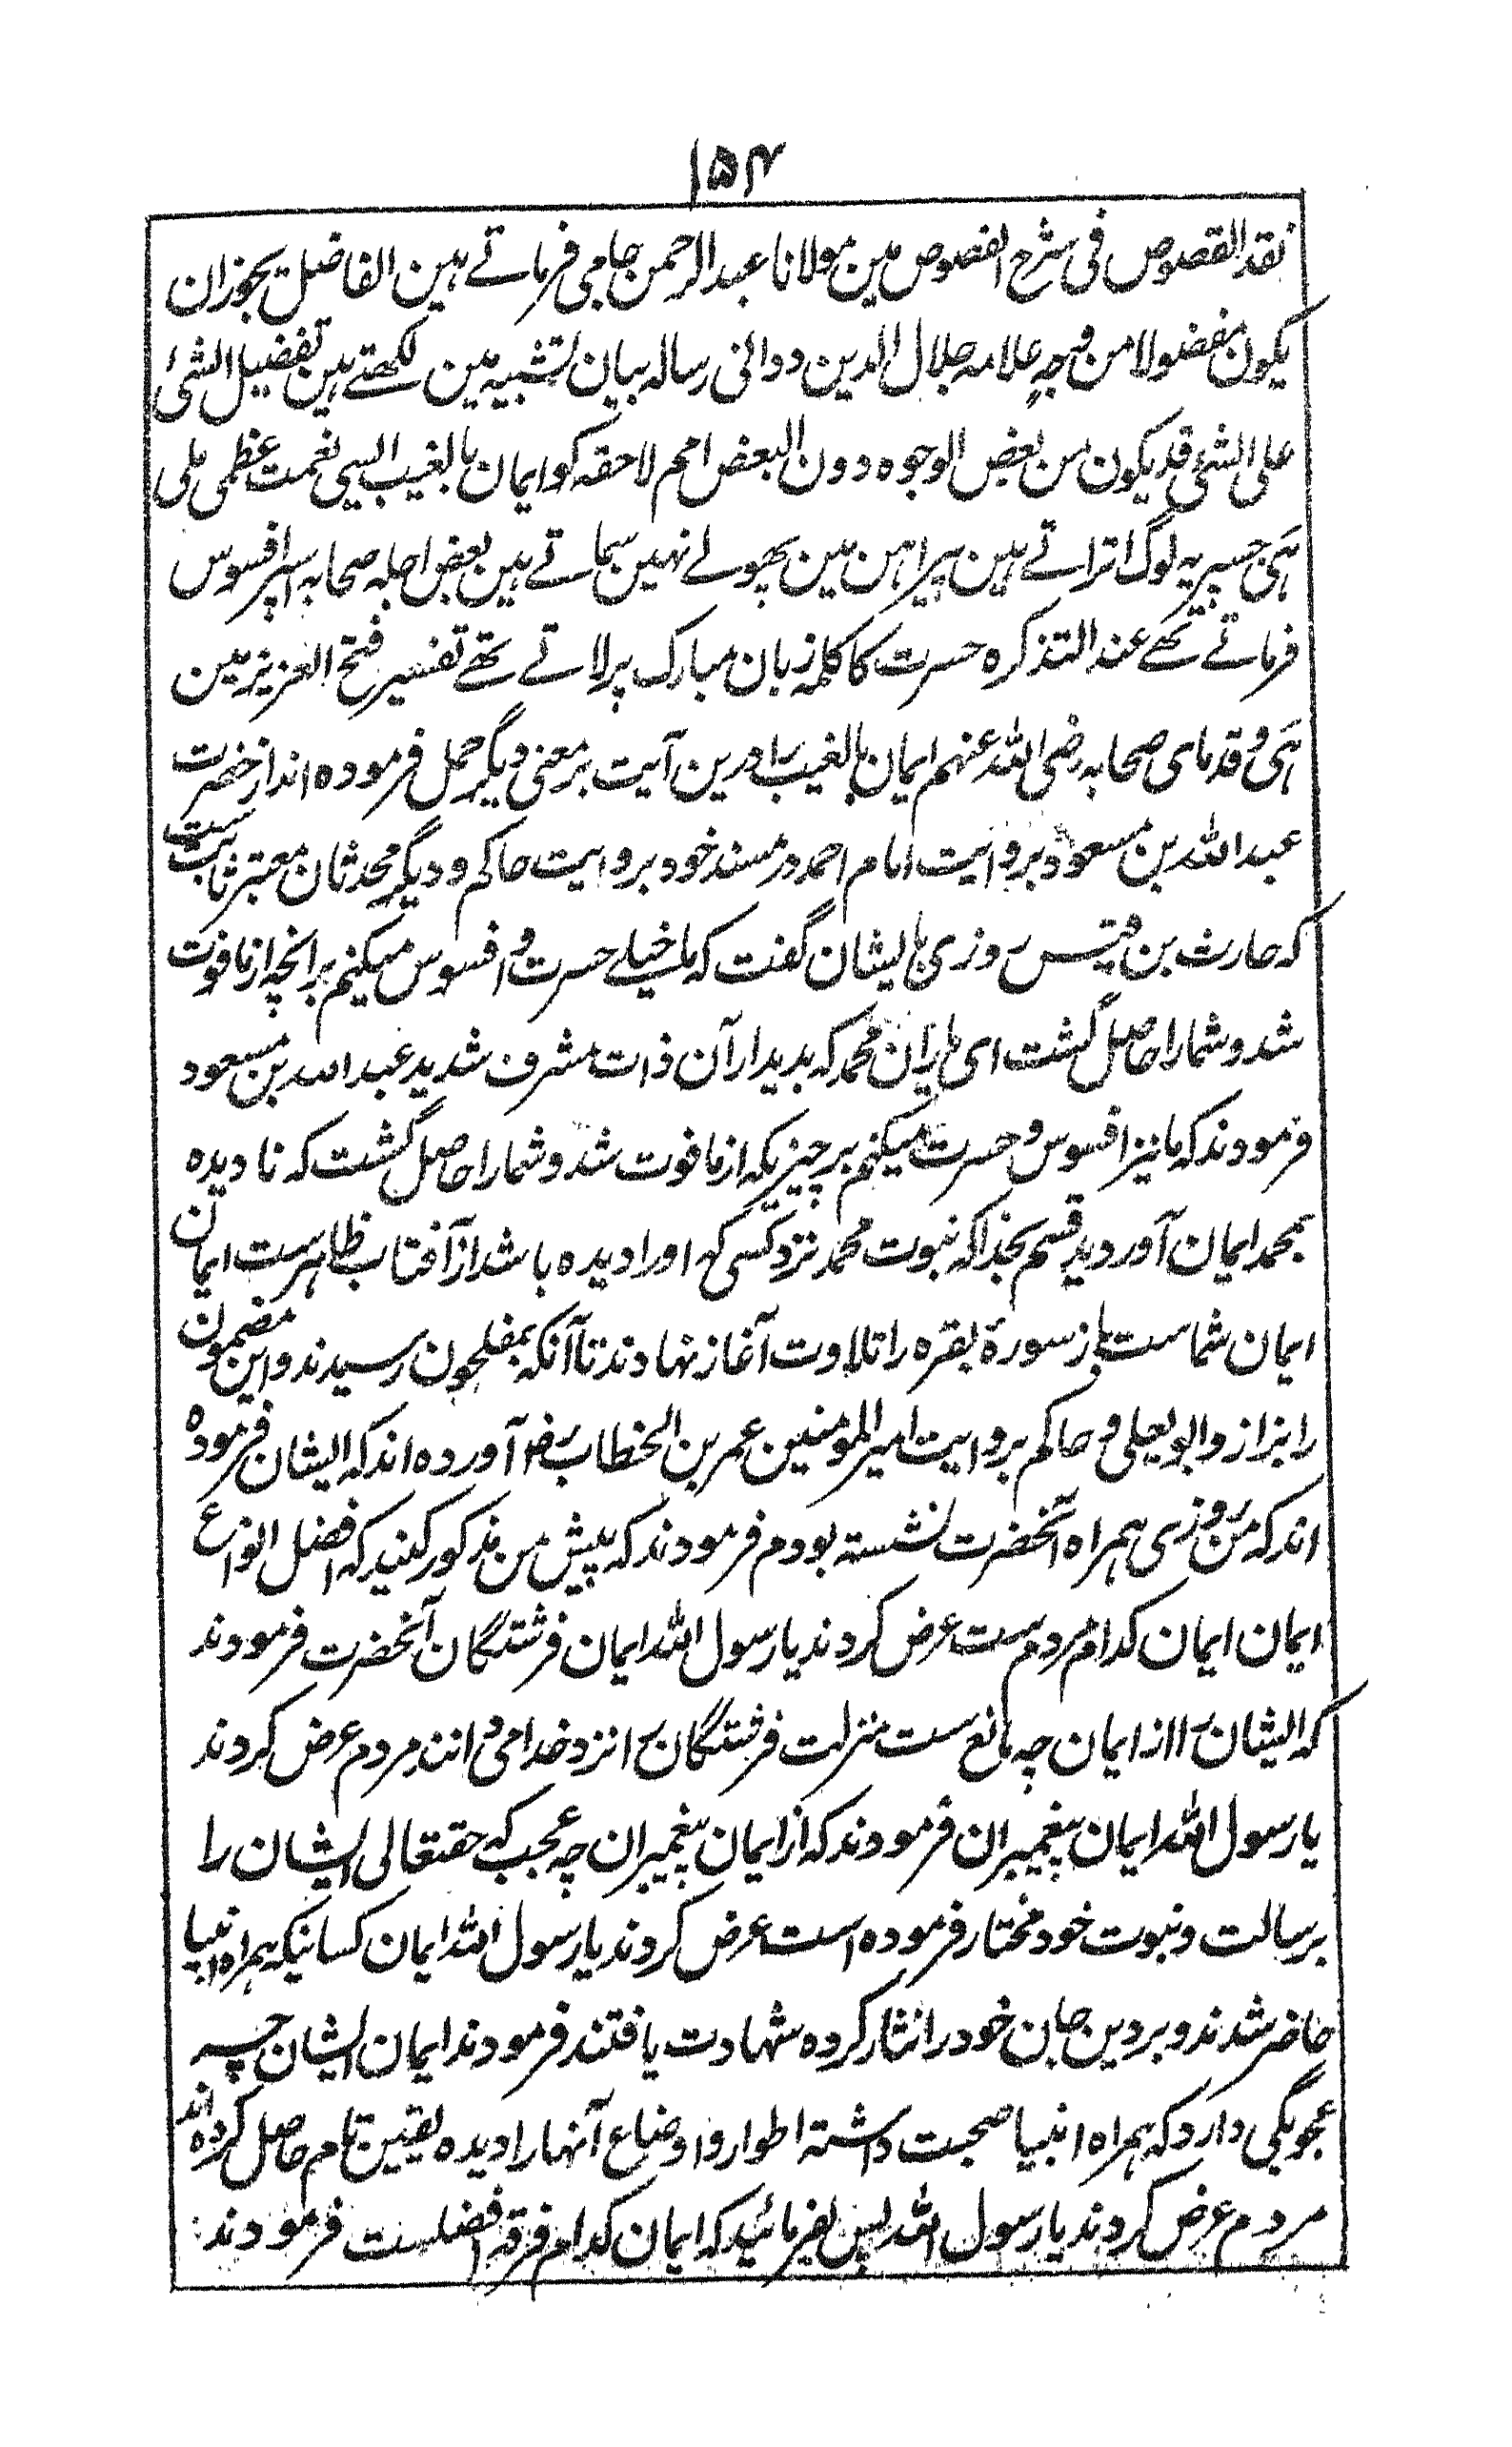 ۱۵۴
نقد القصوص فی شرح الفصوص مین مولانا عبد الرحمن جامی فرماتے ہین الفاضل یجوز ان
یکون مفضولا من وجہٍ علامہ جلال الدین دوانی رسالہ بیان تشبیہ مین لکھتے ہین تفضیل الشیٔ
علی الشیٔ قد یکون من بعض الوجوہ دون البعض امم لاحقہ کو ایمان بالغیب ایسی نعمت عظمی ملی
ہی جسپر یہ لوگ اتراتے ہین پیراہن مین پھولے نہین سماتے ہین بعض اجلہ صحابہ اسپر افسوس
فرماتے تھے عند التذکرہ حسرت کا کلمہ زبان مبارک پر لاتے تھے تفسیر فتح العزیز مین
ہی و قدمای صحابہ رضی اللہ عنہم ایمان بالغیب را درین آیت بر معنی دیگر حمل فرمودہ اند از حضرت
عبد اللہ بن مسعود بروایت امام احمد در مسند خود بروایت حاکم و دیگر محدثان معتبر ثابت ست
کہ حارث بن قیس روزی بایشان گفت کہ ما خیلے حسرت و افسوس میکنم بر انچہ از ما فوت
شد و شما را حاصل گشت ای یاران محمد کہ بدیدار آن ذات مشرف شدید عبد اللہ بن مسعود
فرمودند کہ ما نیز افسوس و حسرت میکنم بر چیزیکہ از ما فوت شد و شما را حاصل گشت کہ نادیدہ
بمحمد ایمان آوردید قسم بخدا کہ نبوت محمد نزد کسی کہ او را دیدہ باشد از آفتاب ظاہرست ایمان
ایمان شماست باز سورۂ بقرہ را تلاوت آغاز نہادند تا آنکہ بمفلحون رسیدند و این مضمون
را بزاز و ابو یعلی و حاکم بروایت امیر المومنین عمر بن الخطاب رضـ آوردہ اند کہ ایشان فرمودہ
اند کہ من روزی ہمراہ آنحضرت نشستہ بودم فرمودند کہ پیش من مذکور کنید کہ افضل انواع
ایمان ایمان کدام مردم ست عرض کردند یا رسول اللہ ایمان فرشتگان آنحضرت فرمودند
کہ ایشان را از ایمان چہ مانع ست منزلت فرشتگان را نزد خدا می دانند مردم عرض کردند
یا رسول اللہ ایمان پیغمبران فرمودند کہ از ایمان پیغمبران چہ عجب کہ حقتعالی ایشان را
برسالت و نبوت خود مختار فرمودہ است عرض کردند یا رسول اللہ ایمان کسانیکہ ہمراہ انبیا
حاضر شدند و بر دین جان خود را نثار کردہ شہادت یافتند فرمودند ایمان ایشان چہ
عجوبگی دارد کہ ہمراہ انبیا صحبت داشتہ اطوار و اوضاع آنہا را دیدہ یقین تام حاصل کردہ اند
مردم عرض کردند یا رسول اللہ پس بفرمائید کہ ایمان کدام فرقہ افضلست فرمودند